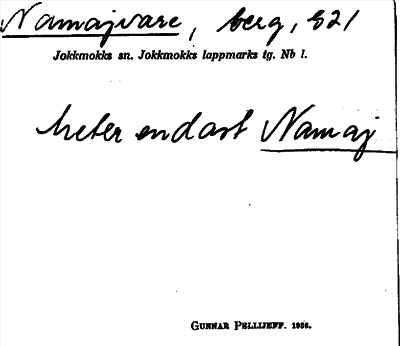 Namajvare, berg, 821
Jokkmokks sn. Jokkmokks lappmarks tg. Nb l.
heter endast Namaj
GUNNAR PELLIJEFF. 1956.